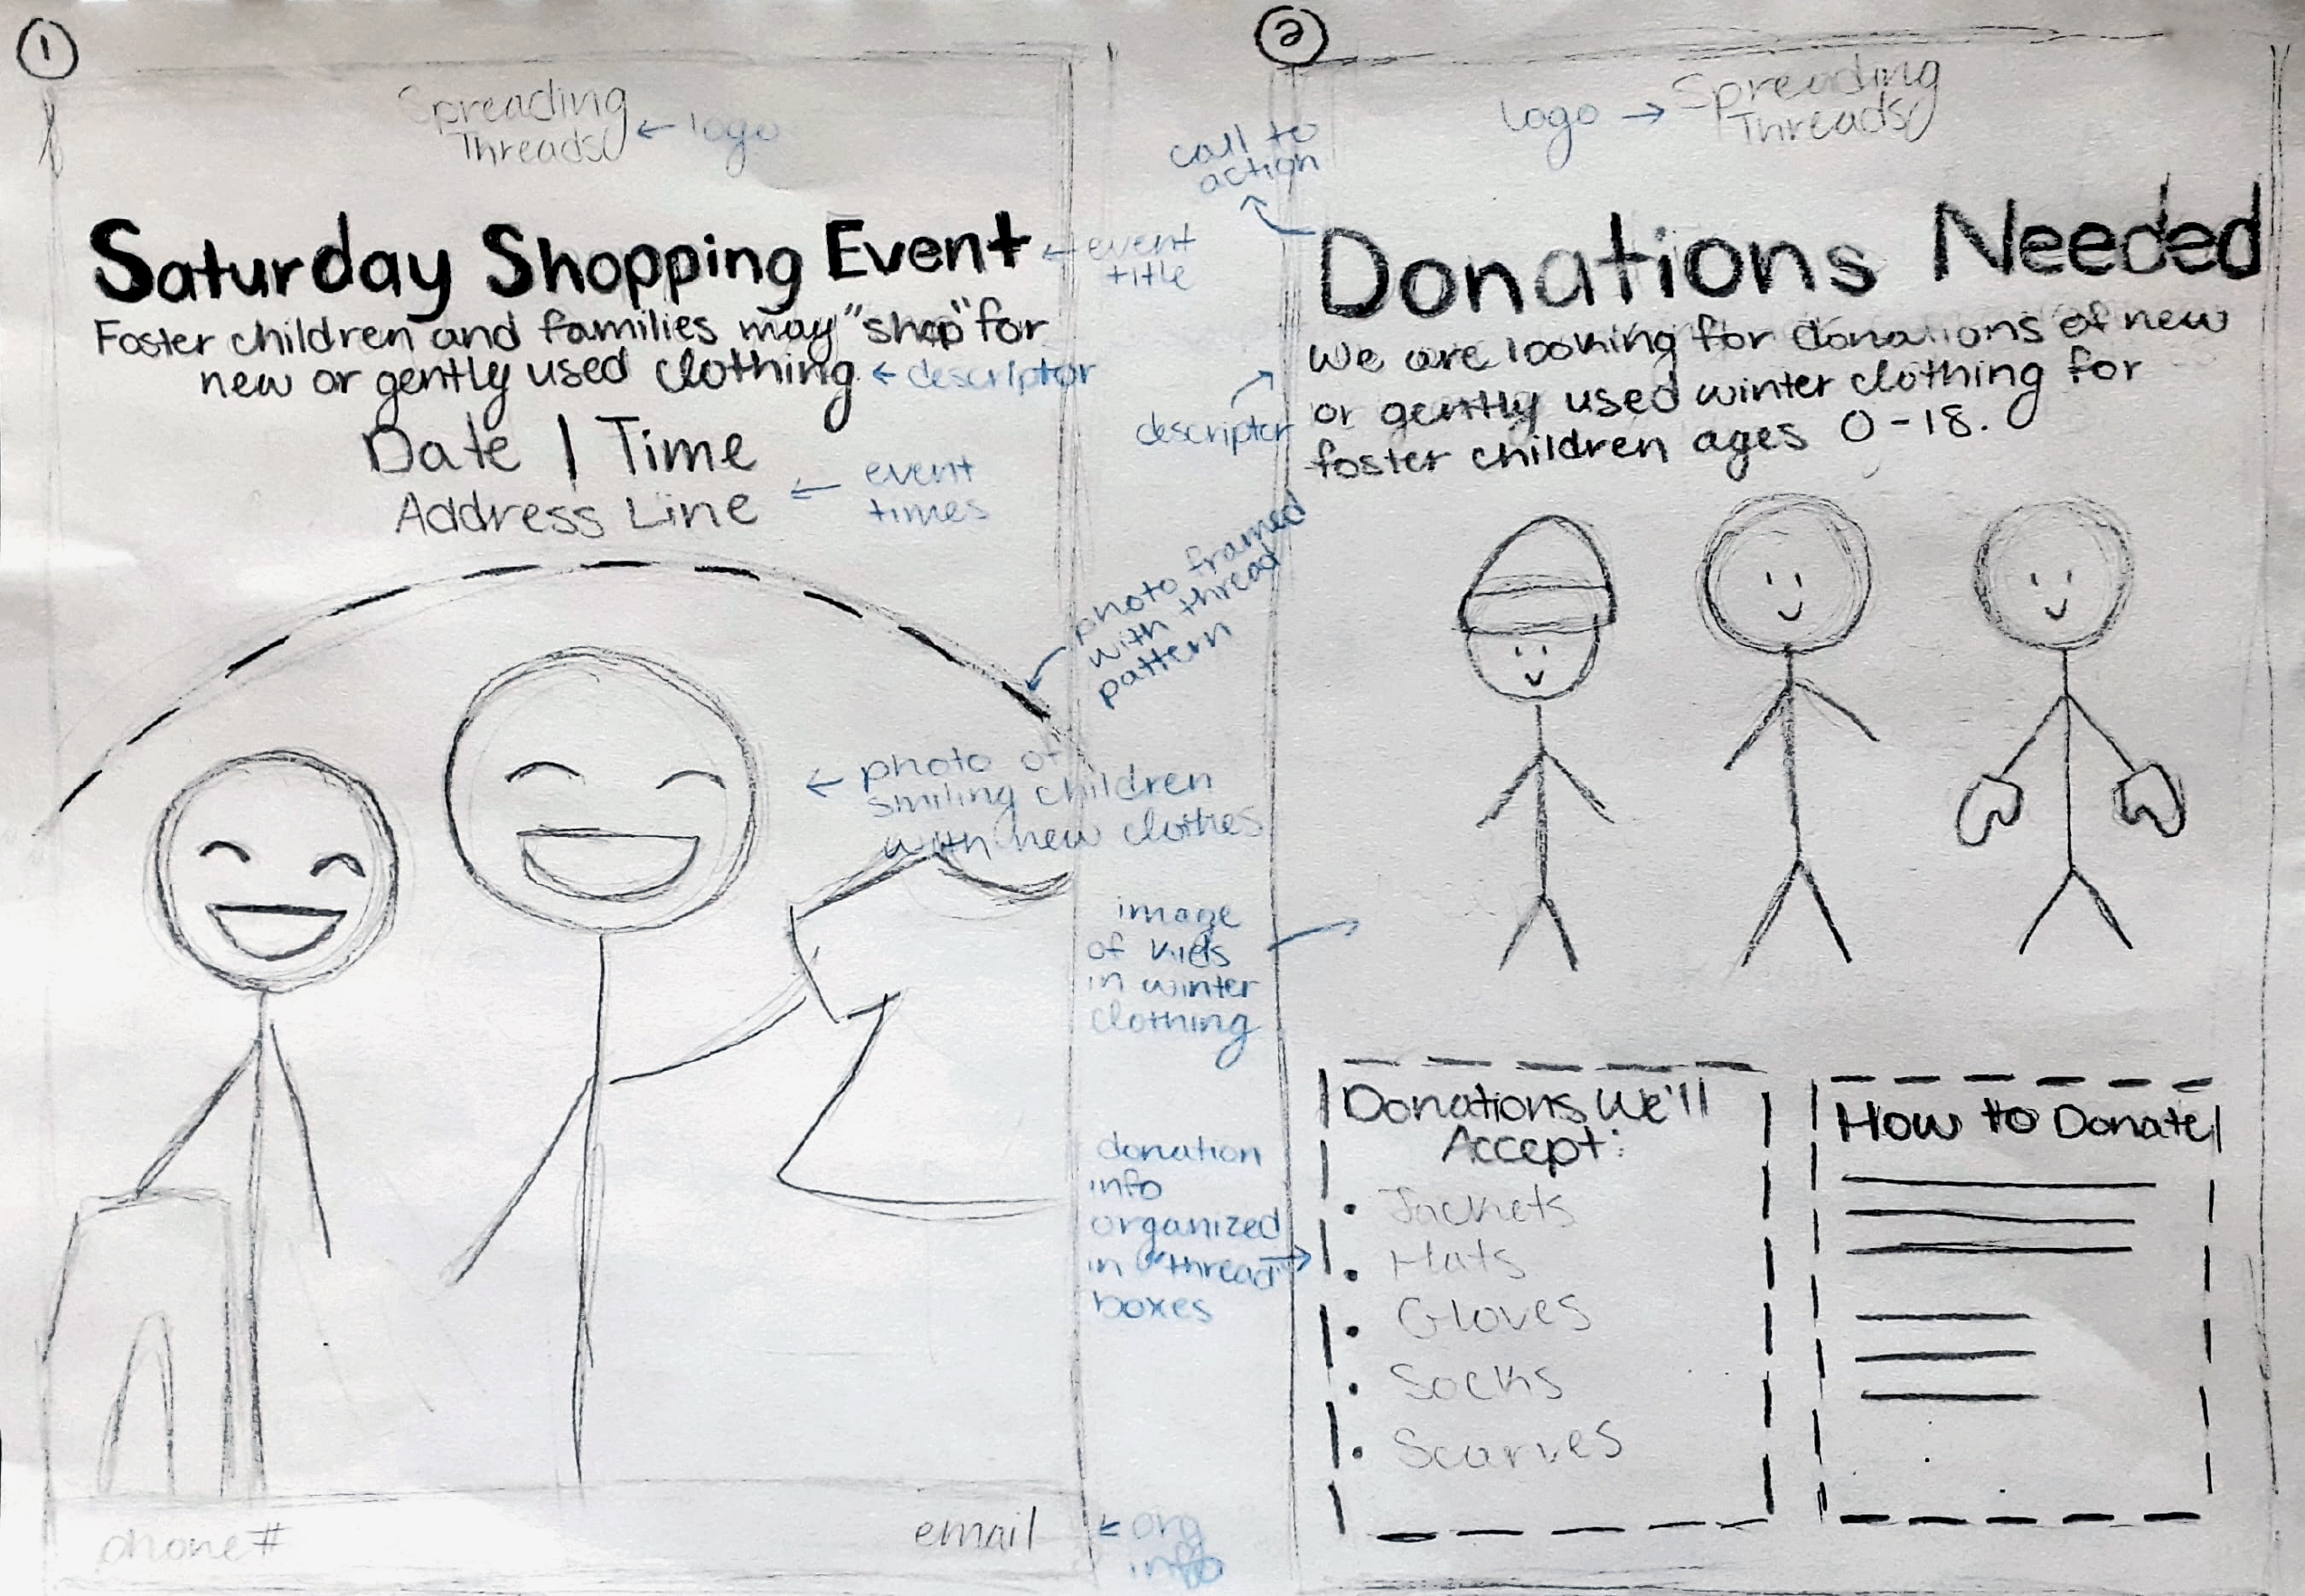 1
Spreading
Threads
← logo
Saturday Shopping Event
← event
title
Foster children and families may "shop" for
new or gently used clothing.
← descriptor
Date | Time
Address Line
← event
times
photo framed
with thread
pattern
← photo of
smiling children
with new clothes
phone #
email
← org
info
2
logo →
Spreading
Threads
call to
action
Donations Needed
We are looking for donations of new
or gently used winter clothing for
foster children ages 0-18.
descriptor
image
of kids
in winter
clothing
donation
info
organized
in "thread"
boxes
Donations We'll
Accept:
• Jackets
• Hats
• Gloves
• Socks
• Scarves
How to Donate